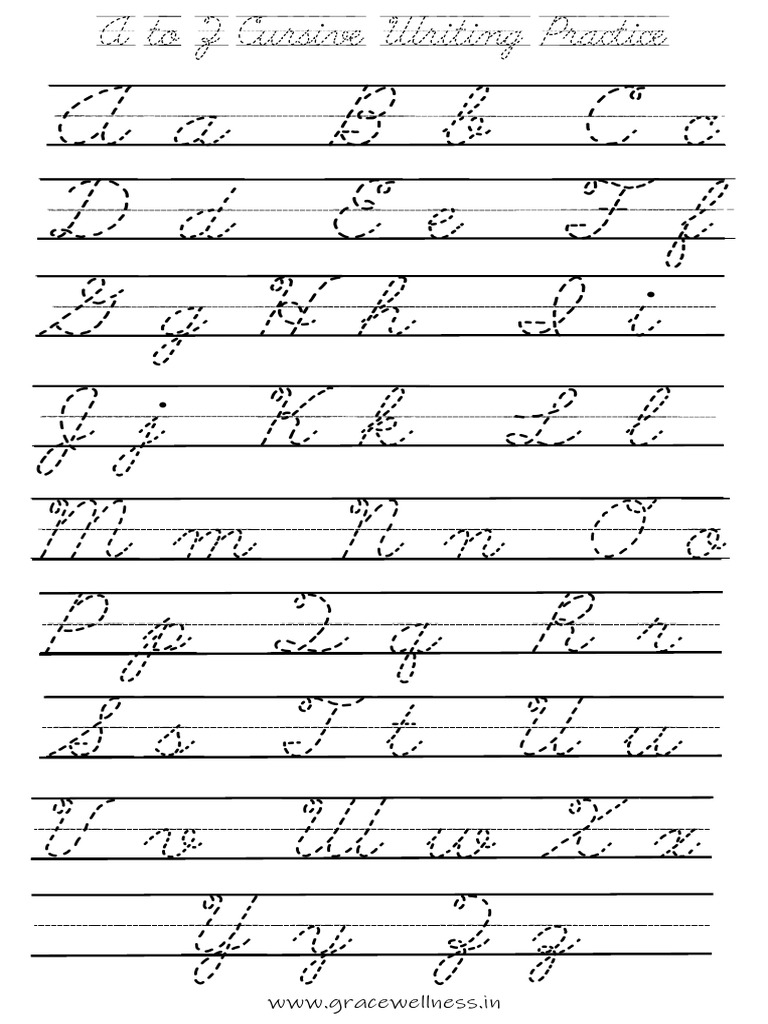 A to Z Cursive Writing Practice
A a B b C c
D d E e F f
G g H h I i
J j K k L l
M m N n O o
P p Q q R r
S s T t U u
V v W w X x
Y y Z z
www.gracewellness.in